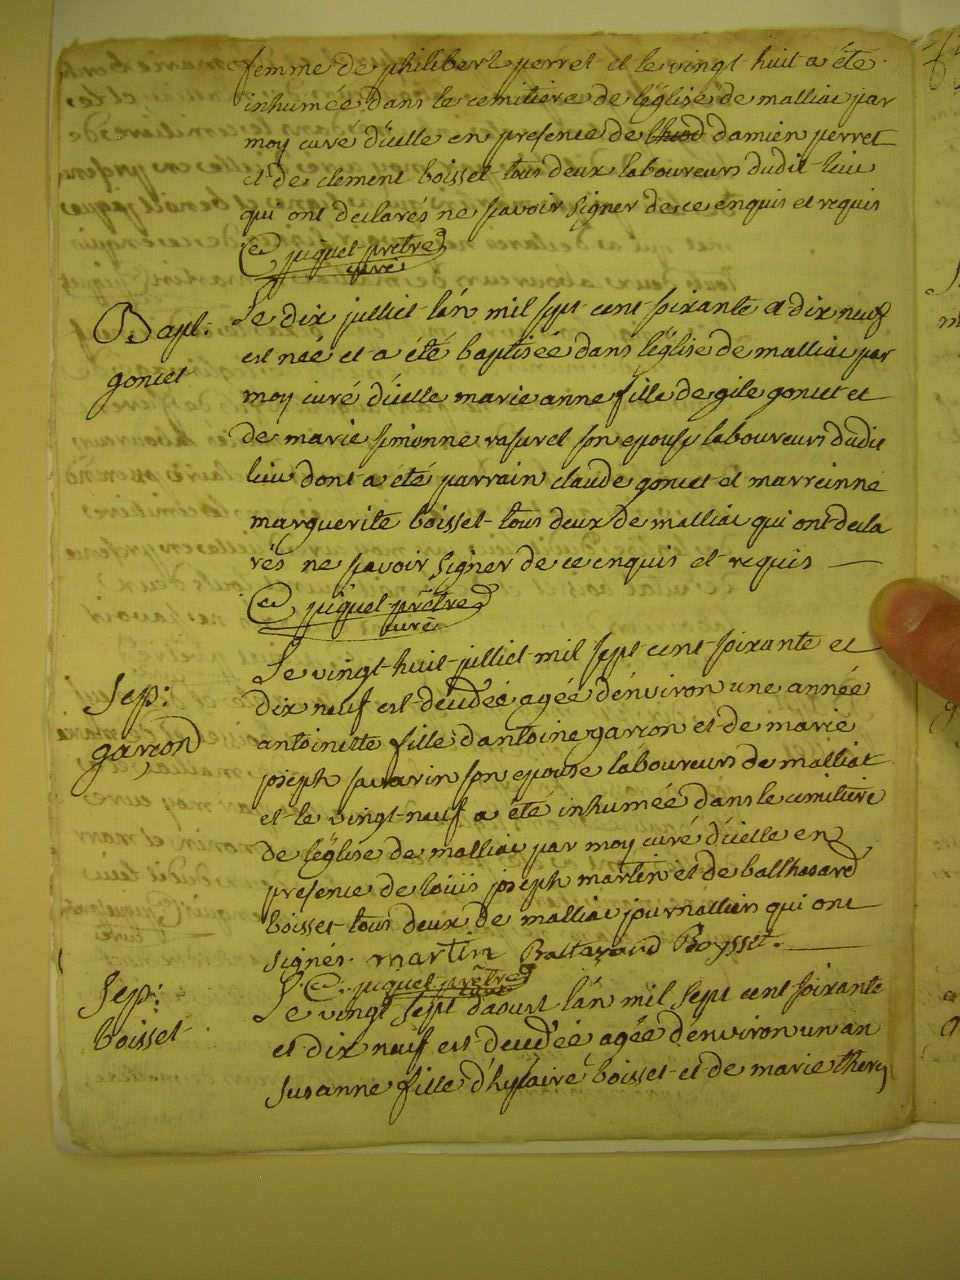 femme de philibert perret et le vingt huit a été
inhumée dans le cemitiere de léglise de malliac par
moy curé d'icelle en presence de damien perret
et de clement boisset tous deux laboureurs dudit lieu
qui ont declarés ne savoir signer de ce enquis et requis
C. juquel prêtre
curé
Bapt:
goncet
Le dix julliet lán mil sept cent soixante et dix neuf
est née et a été baptisée dans léglise de malliac par
moy curé d'icelle marie anne fille de gile goncet et
de marie simonne rasurel son epouse laboureurs dudit
lieu dont a été parrain claude goncet et marreinne
marguerite boisset tous deux de malliac qui ont decla
rés ne savoir signer de ce enquis et requis
C. juquel prêtre
curé
Sep:
garçon
Le vingt huit julliet mil sept cent soixante et
dix neuf est decedée agée d'environ une année
antoinette fille d'antoine garcon et de marie
joseph savarin son epouse laboureurs de malliat
et le vingt neuf a été inhumée dans le cemitiere
de léglise de malliac par moy curé d'icelle en
presence de loüis joseph martin et de balthasard
boisset tous deux de malliac journalliers qui ont
signés. martin Baltazard Boysset.
C. juquel prêtre
curé
Sep:
boisset
Le vingt sept daoust lán mil sept cent soixante
et dix neuf est decedée agée denviron un an
susanne fille d'hylaire boisset et de marie therese